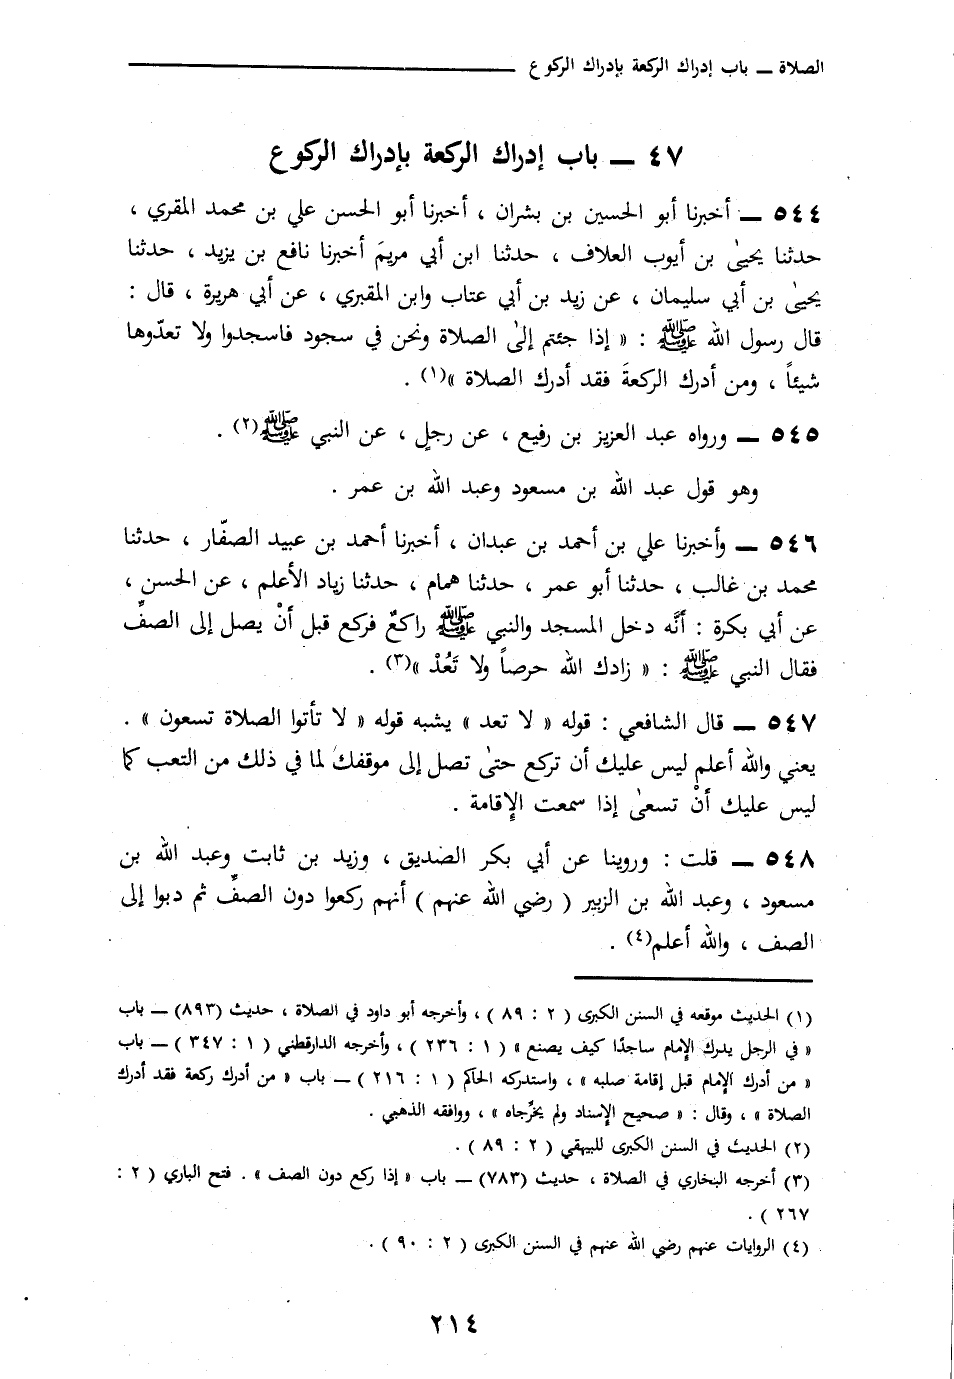 الصلاة ــ باب إدراك الركعة بإدراك الركوع
٤٧ ــ باب إدراك الركعة بإدراك الركوع
٥٤٤ ــ أخبرنا أبو الحسين بن بشران ، أخبرنا أبو الحسن علي بن محمد المقري ،
حدثنا يحيىٰ بن أيوب العلاف ، حدثنا ابن أبي مريمَ أخبرنا نافع بن يزيد ، حدثنا
يحيىٰ بن أبي سليمان ، عن زيد بن أبي عتاب وابن المقبري ، عن أبي هريرة ، قال :
قال رسول الله ﷺ : « إذا جئتم إلىٰ الصلاة ونحن في سجود فاسجدوا ولا تعدّوها
شيئاً ، ومن أدرك الركعةَ فقد أدرك الصلاة »(١) .
٥٤٥ ــ ورواه عبد العزيز بن رفيع ، عن رجلٍ ، عن النبي ﷺ(٢) .
وهو قول عبد الله بن مسعود وعبد الله بن عمر .
٥٤٦ ــ وأخبرنا علي بن أحمد بن عبدان ، أخبرنا أحمد بن عبيد الصفّار ، حدثنا
محمد بن غالب ، حدثنا أبو عمر ، حدثنا همام ، حدثنا زياد الأعلم ، عن الحسن ،
عن أبي بكرة : أنَّه دخل المسجد والنبي ﷺ راكعٌ فركع قبل أنْ يصل إلى الصفِّ
فقال النبي ﷺ : « زادك الله حرصاً ولا تَعُدْ »(٣) .
٥٤٧ ــ قال الشافعي : قوله « لا تعد » يشبه قوله « لا تأتوا الصلاة تسعون » .
يعني والله أعلم ليس عليك أن تركع حتىٰ تصل إلى موقفك لما في ذلك من التعب كما
ليس عليك أنْ تسعىٰ إذا سمعت الإقامة .
٥٤٨ ــ قلت : وروينا عن أبي بكر الصديق ، وزيد بن ثابت وعبد الله بن
مسعود ، وعبد الله بن الزبير ( رضي الله عنهم ) أنهم ركعوا دون الصفِّ ثم دبوا إلى
الصف ، والله أعلم(٤) .
(١) الحديث موقعه في السنن الكبرى ( ٢ : ٨٩ ) ، وأخرجه أبو داود في الصلاة ، حديث (٨٩٣) ــ باب
« في الرجل يدرك الإمام ساجدًا كيف يصنع » ( ١ : ٢٣٦ ) ، وأخرجه الدارقطني ( ١ : ٣٤٧ ) ــ باب
« من أدرك الإمام قبل إقامة صلبه » ، واستدركه الحاكم ( ١ : ٢١٦ ) ــ باب « من أدرك ركعة فقد أدرك
الصلاة » ، وقال : « صحيح الإسناد ولم يخرّجاه » ، ووافقه الذهبي .
(٢) الحديث في السنن الكبرى للبيهقي ( ٢ : ٨٩ ) .
(٣) أخرجه البخاري في الصلاة ، حديث (٧٨٣) ــ باب « إذا ركع دون الصف » . فتح الباري ( ٢ :
٢٦٧ ) .
(٤) الروايات عنهم رضي الله عنهم في السنن الكبرى ( ٢ : ٩٠ ) .
٢١٤